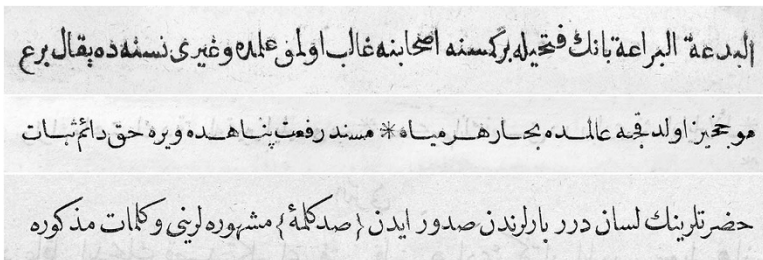 البدعة البراعة بانك فتحيله بركمسنه اصحابنه غالب اولمق علمده وغيرى نسنه ده يقال برع
موجخيز اولدقجه عالمده بحار هر مياه * مسند رفعت پناهده ويره حق دائم ثبات
حضرتلرينك لسان درر بارلرندن صدور ايدن {صد كلمهٔ} مشهوره لرينى وكلمات مذكوره